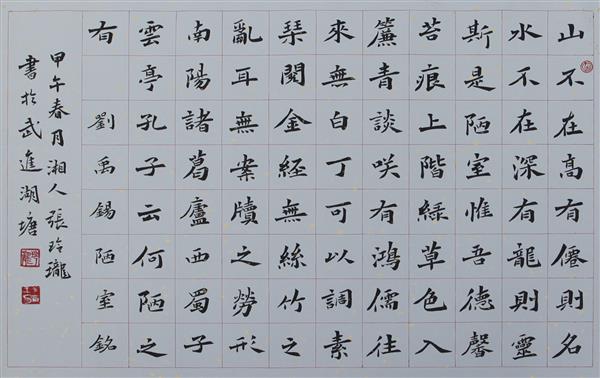 山不在高有僊則名
水不在深有龍則靈
斯是陋室惟吾德馨
苔痕上階緑草色入
簾青談咲有鴻儒往
來無白丁可以調素
琴閱金經無絲竹之
亂耳無案牘之勞形
南陽諸葛廬西蜀子
雲亭孔子云何陋之
有 劉禹錫陋室銘
甲午春月湘人張玲瓏
書於武進湖塘